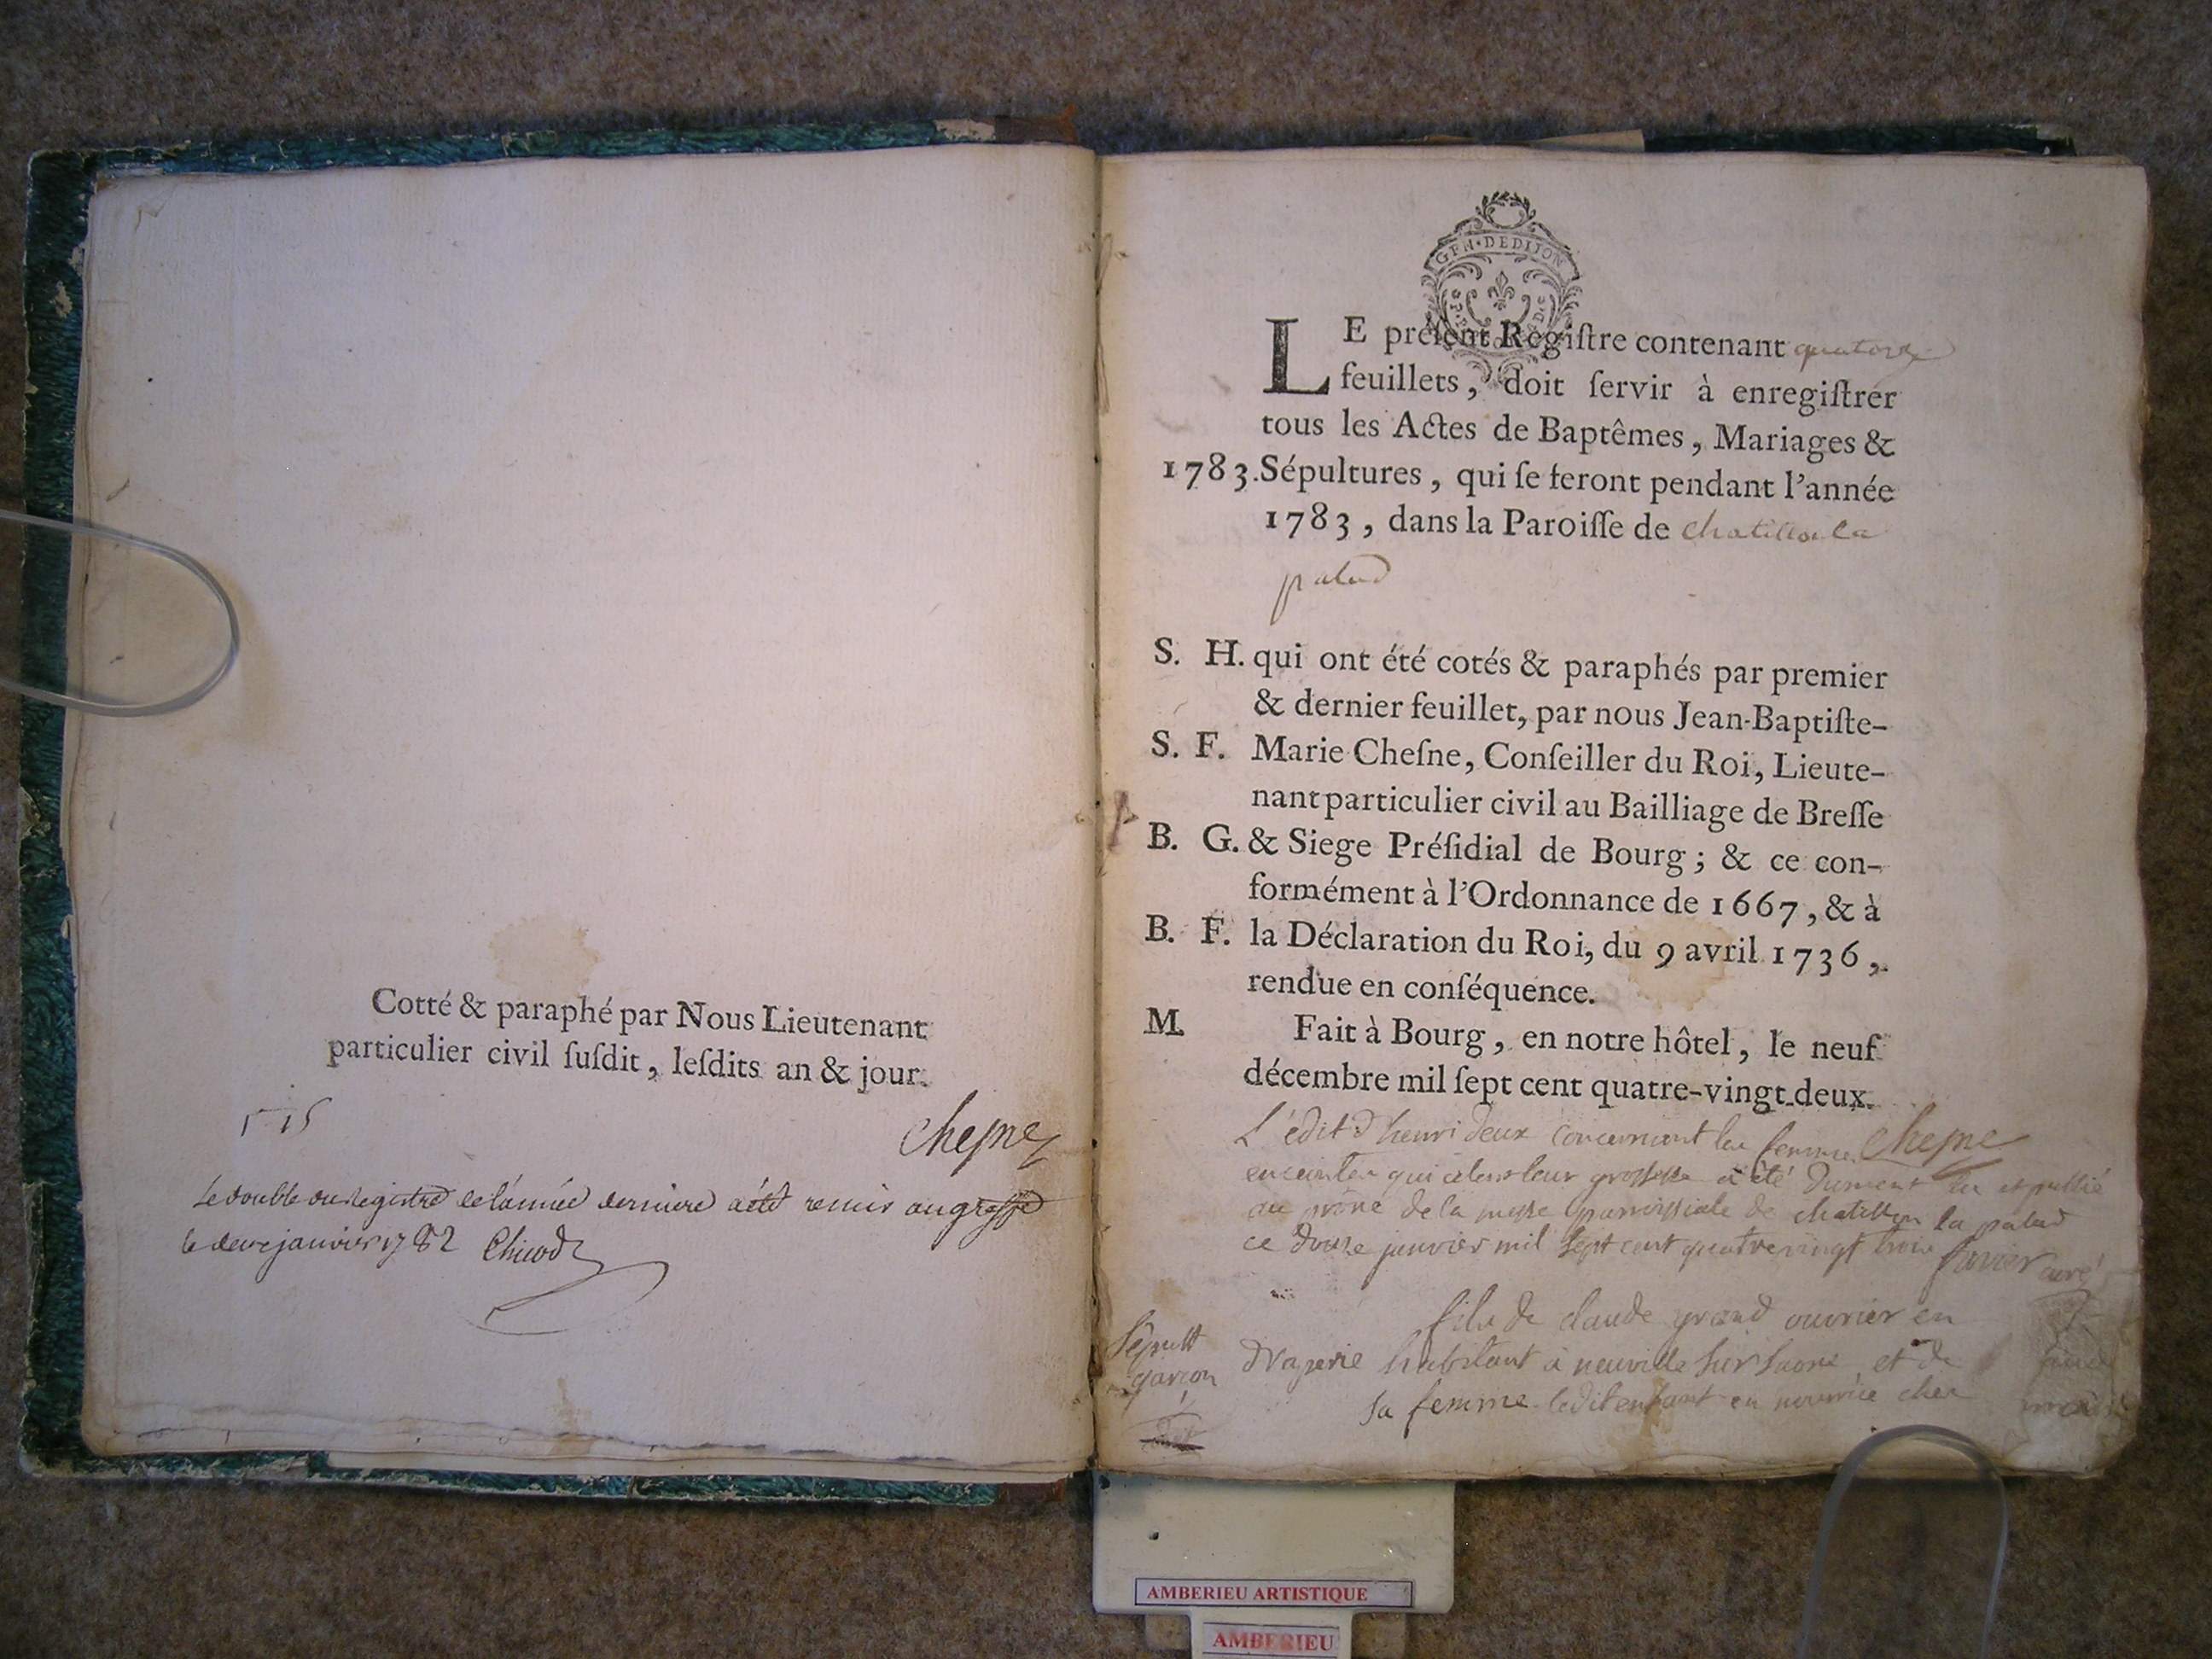 Cotté & paraphé par Nous Lieutenant
particulier civil ſuſdit, leſdits an & jour.
Cheſne
Le double du Registre de l'année derniere a été remis au greffe
le janvier 1782
GEN•DEDIJON
LE préſent Regiſtre contenant quatorze
feuillets, doit ſervir à enregiſtrer
tous les Actes de Baptêmes, Mariages &
1783. Sépultures, qui ſe feront pendant l'année
1783, dans la Paroiſſe de chatillon la
palud
S. H. qui ont été cotés & paraphés par premier
& dernier feuillet, par nous Jean-Baptiſte-
S. F. Marie Cheſne, Conſeiller du Roi, Lieute-
nant particulier civil au Bailliage de Breſſe
B. G. & Siege Préſidial de Bourg; & ce con-
formément à l'Ordonnance de 1667, & à
B. F. la Déclaration du Roi, du 9 avril 1736,
rendue en conſéquence.
M. Fait à Bourg, en notre hôtel, le neuf
décembre mil ſept cent quatre-vingt-deux.
L'édit d'henri deux concernant les femmes Cheſne
enceintes qui celent leur grossesse a été dument lu et publié
au prône de la messe parroissiale de chatillon la palud
ce douze janvier mil sept cent quatre vingt trois favier curé
fils de claude grand ouvrier en
Sépult draperie habitant à neuville sur saone et de
garçon
sa femme ledit enfant en nourrice chez
AMBERIEU ARTISTIQUE
AMBERIEU